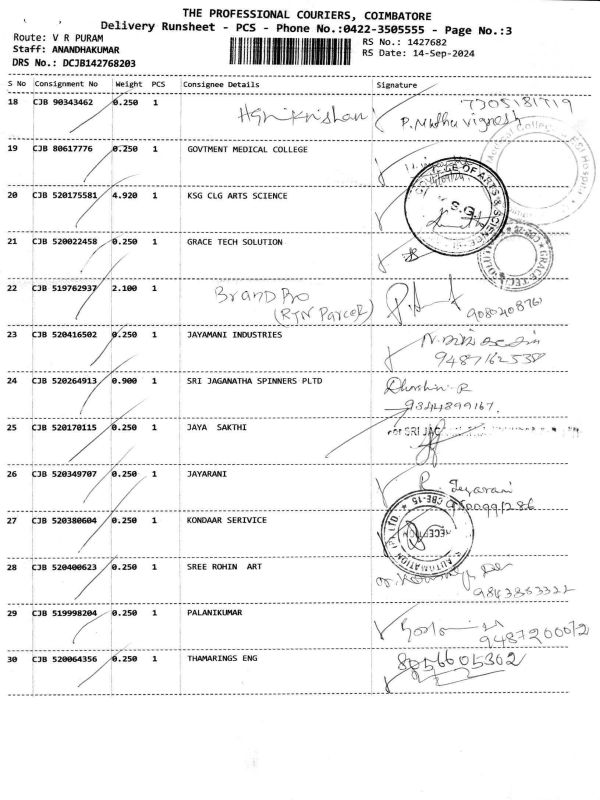 THE PROFESSIONAL COURIERS, COIMBATORE
Delivery Runsheet - PCS - Phone No.:0422-3505555 - Page No.:3
Route: V R PURAM
RS No.: 1427682
Staff: ANANDHAKUMAR
RS Date: 14-Sep-2024
DRS No.: DCJB142768203
S No Consignment No Weight PCS Consignee Details Signature
18 CJB 90343462 0.250 1 Harikrishan P. Madhu Vignesh 7305181719
19 CJB 80617776 0.250 1 GOVTMENT MEDICAL COLLEGE
20 CJB 520175581 4.920 1 KSG CLG ARTS SCIENCE
21 CJB 520022458 0.250 1 GRACE TECH SOLUTION
22 CJB 519762937 2.100 1 Brand Pro
(RTN Parcel)
23 CJB 520416502 0.250 1 JAYAMANI INDUSTRIES
9487162538
24 CJB 520264913 0.900 1 SRI JAGANATHA SPINNERS PLTD Dharshini. R
9344899167.
25 CJB 520170115 0.250 1 JAYA SAKTHI For SRI JAG
26 CJB 520349707 0.250 1 JAYARANI R. Jeyarani
27 CJB 520380604 0.250 1 KONDAAR SERIVICE
28 CJB 520400623 0.250 1 SREE ROHIN ART
9843353322
29 CJB 519998204 0.250 1 PALANIKUMAR
9487200012
30 CJB 520064356 0.250 1 THAMARINGS ENG 8056605302